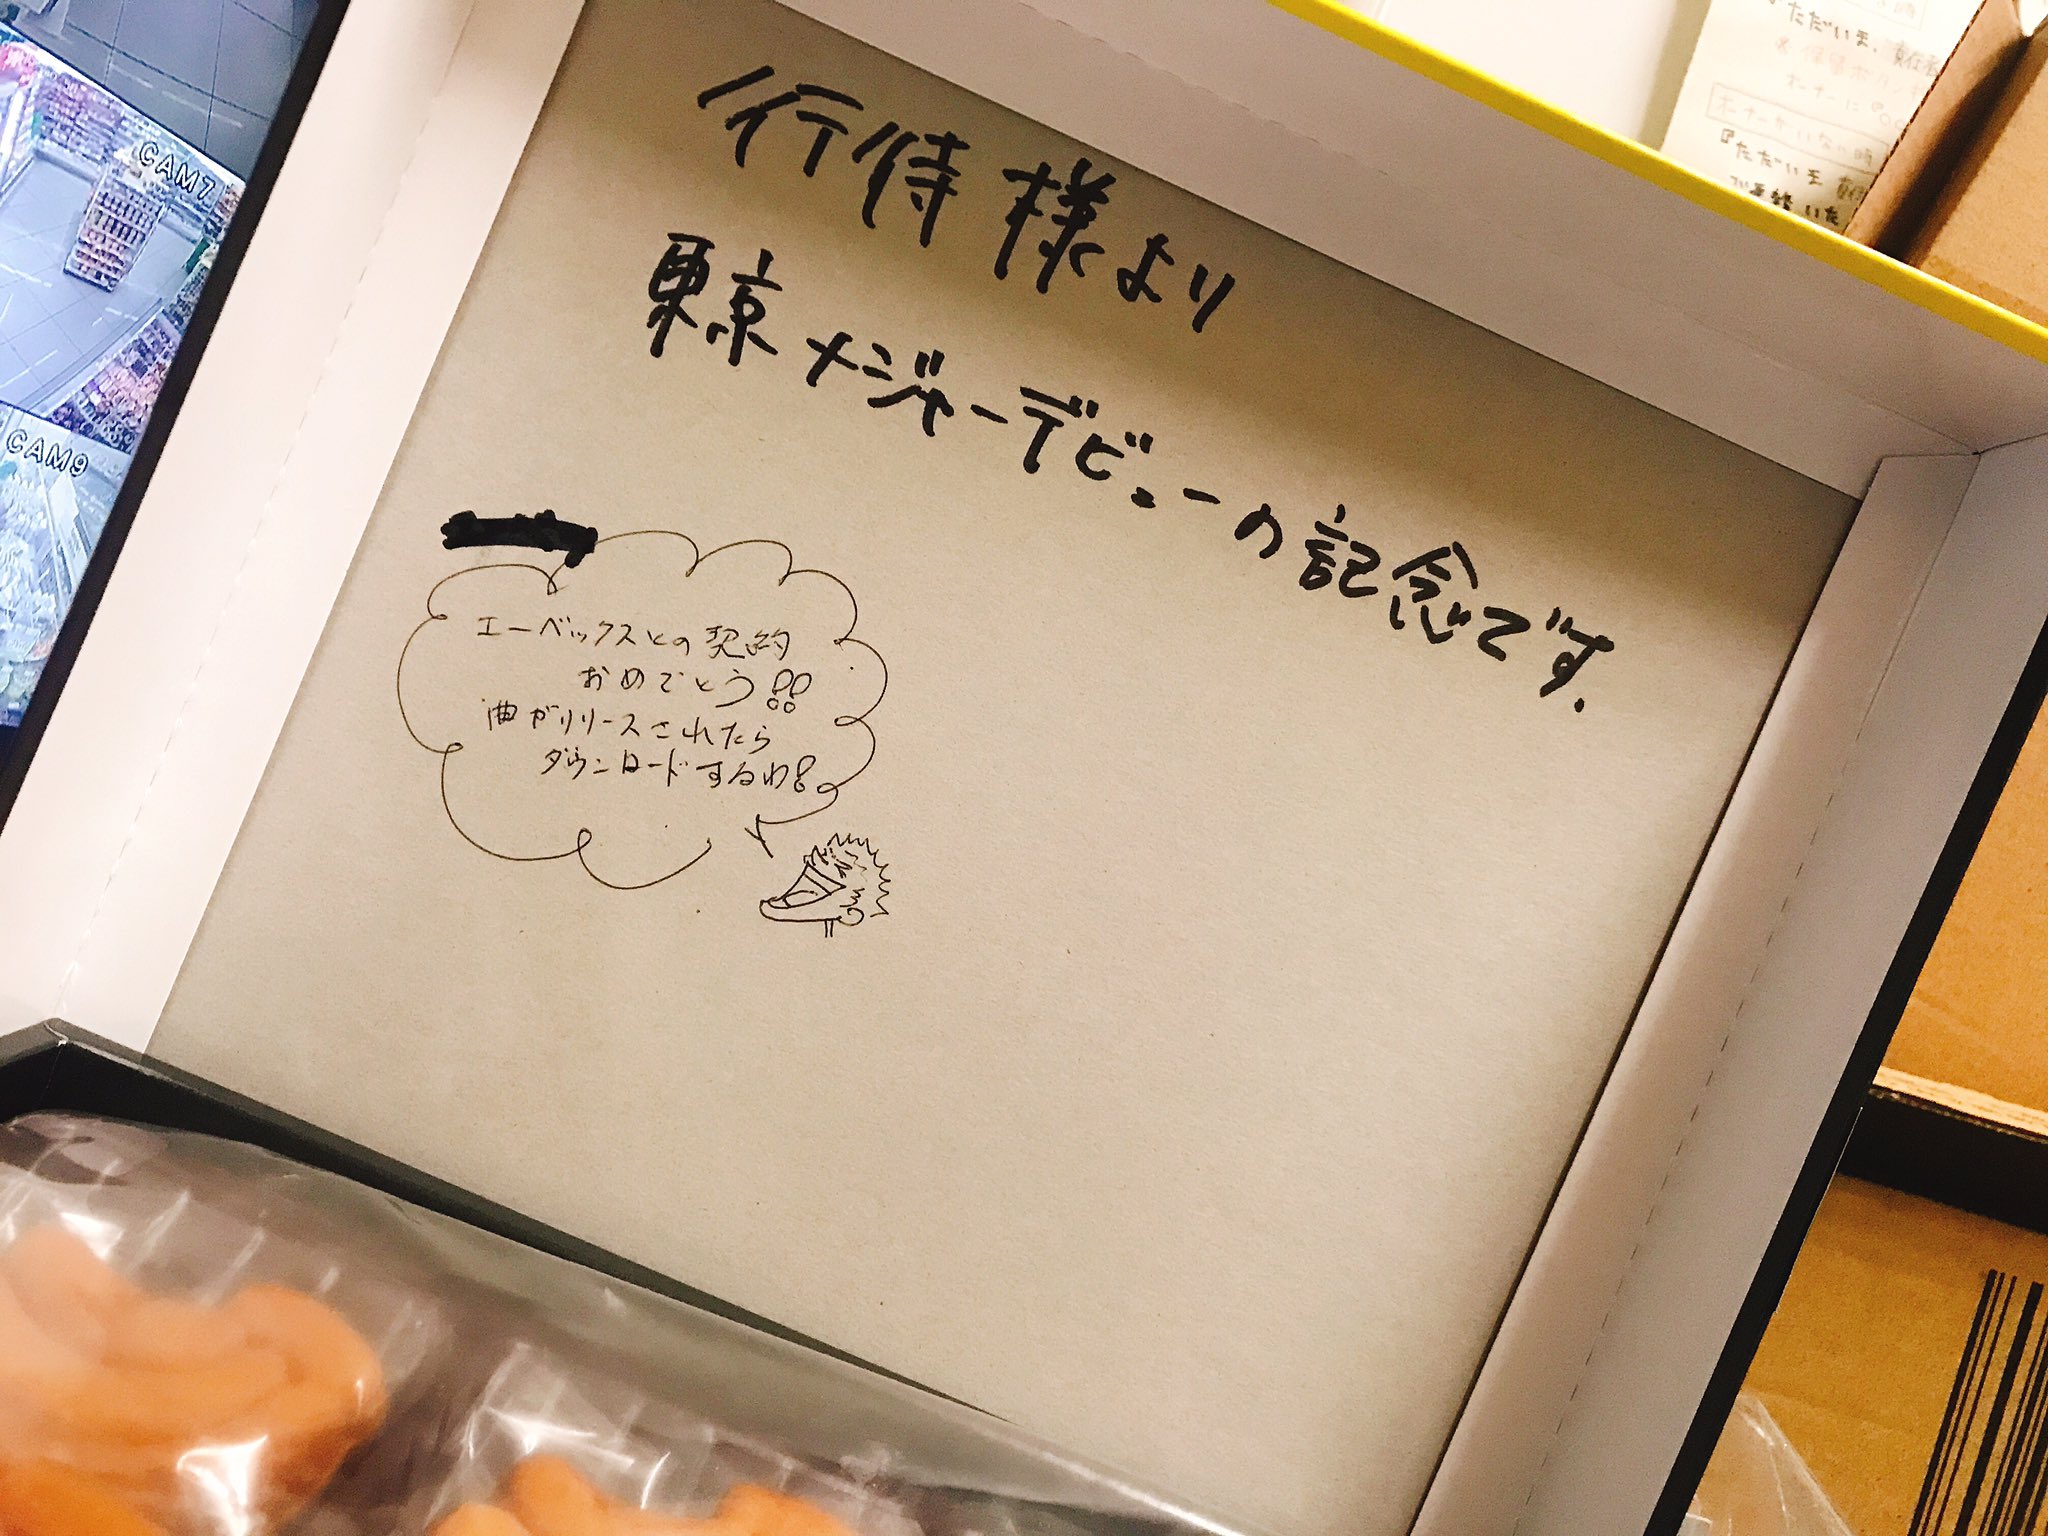 行侍様より
東京メジャーデビューの記念です.
エーベックスとの契約
おめでとう!!
曲がリリースされたら
ダウンロードするわ!
CAM7
CAM9
ただいま、責任者
オーナーに
オーナーがいない時
『ただいま